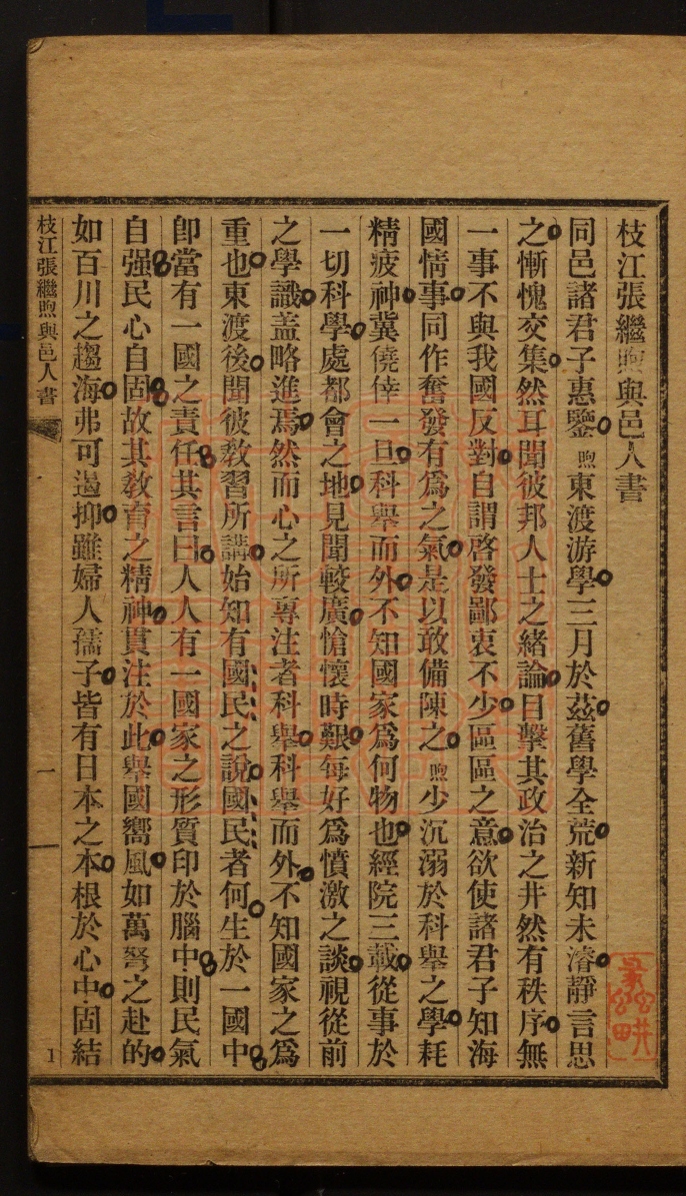 枝江張繼煦與邑人書
同邑諸君子惠鑒煦東渡游學三月於茲舊學全荒新知未濬靜言思
之慚愧交集然耳聞彼邦人士之緒論日擊其政治之井然有秩序無
一事不與我國反對自謂啓發鄙衷不少區區之意欲使諸君子知海
國情事同作奮發有爲之氣是以敢備陳之煦少沉溺於科舉之學耗
精疲神冀僥倖一旦科舉而外不知國家爲何物也經院三載從事於
一切科學處都會之地見聞較廣愴懷時艱每好爲憤激之談視從前
之學識盖略進焉然而心之所專注者科舉科舉而外不知國家之爲
重也東渡後聞彼敎習所講始知有國民之說國民者何生於一國中
卽當有一國之責任其言曰人人有一國家之形質印於腦中則民氣
自强民心自固故其敎育之精神貫注於此舉國嚮風如萬弩之赴的
如百川之趨海弗可遏抑雖婦人孺子皆有日本之本根於心中固結
枝江張繼煦與邑人書
一
1